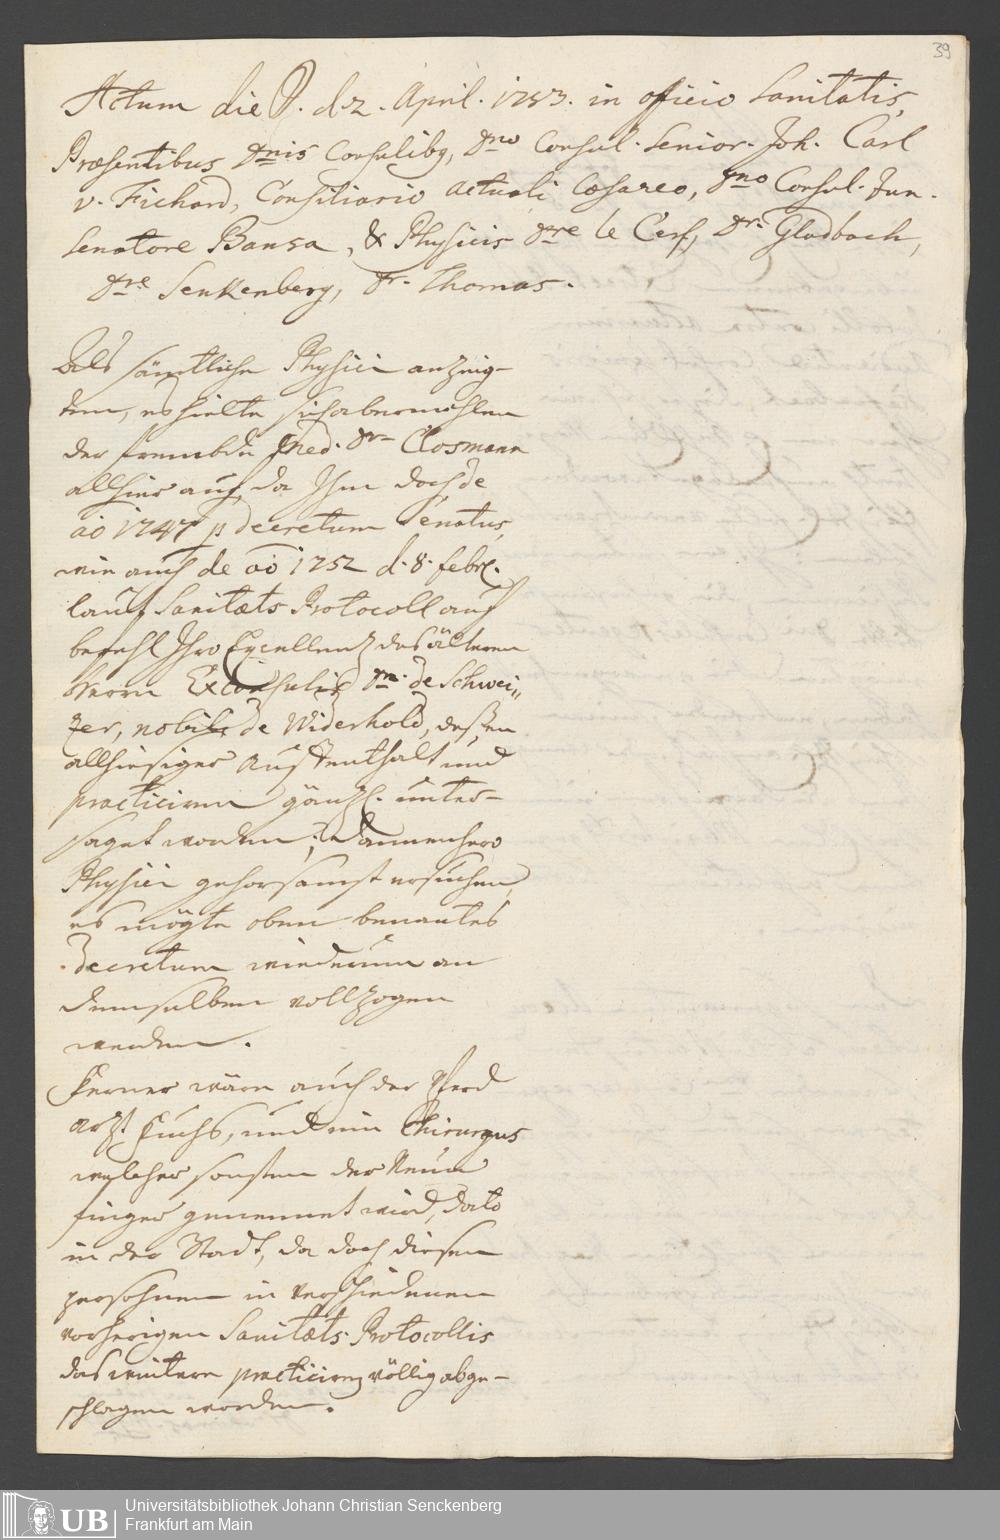 39
Actum die d. 2. April. 1753. in officio Sanitatis,
Præsentibus Dnis Consulibq, Dno Consul. Senior. Joh. Carl
v. Fichard, Consiliario actuali Cæsareo, Dno Consul. Jun.
Senatore Bansa, & Physicis Dre le Cerf, Dr. Gladbach,
Dre Senkenberg, Dr. Thomas.
Als sämtliche Physici anzeig-
ten, es hielte sich abermahlen
der frembde Med. Dr. Closmann
allhier auf, da Ihm doch de
ao 1747 p decretum Senatus,
wie auch de ao 1752 d. 8. febr.
laut Sanitæts Protocoll auf
befehl Ihro Excellentz des älteren
Herrn Exconsulis Dn. de Schwei„
zer, nobilis de Widerhold, deßen
allhiesiger Auffenthalt und
practiciren gäntzl. unter-
saget worden; Dannenhero
Physici gehorsamst ersuchen,
es mögte oben benantes
Decretum wiederum an
demselben vollzogen
werden.
Ferner wäre auch der Pferd
Arzt Fuchs, und ein Chirurgus
welcher sonsten der Neun
finger genennet wird, dato
in der Stadt, da doch diesen
persohnen in verschiedenen
vorherigen Sanitæts Protocollis
das weitere practiciren völlig abge-
schlagen worden.
UB
Universitätsbibliothek Johann Christian Senckenberg
Frankfurt am Main